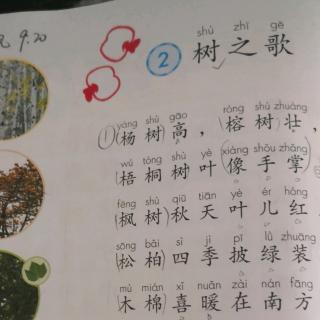 9.20
shù zhī gē
② 树之歌
yáng shù gāo róng shù zhuàng
① 杨树高，榕树壮，
wú tóng shù yè xiàng shǒu zhǎng
梧桐树叶像手掌
fēng shù qiū tiān yè ér hóng
枫树秋天叶儿红
sōng bǎi sì jì pī lǜ zhuāng
松柏四季披绿装
mù mián xǐ nuǎn zài nán fāng
木棉喜暖在南方